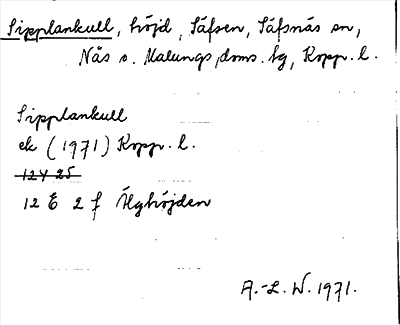 Sipplankull, höjd, Säfsen, Säfsnäs sn,
Nås o. Malungs doms. hg, Kopp. l.
Sipplankull
ek (1971) Kopp. l.
124 25
12 E 2 f Älghöjden
A.-L. W. 1971.